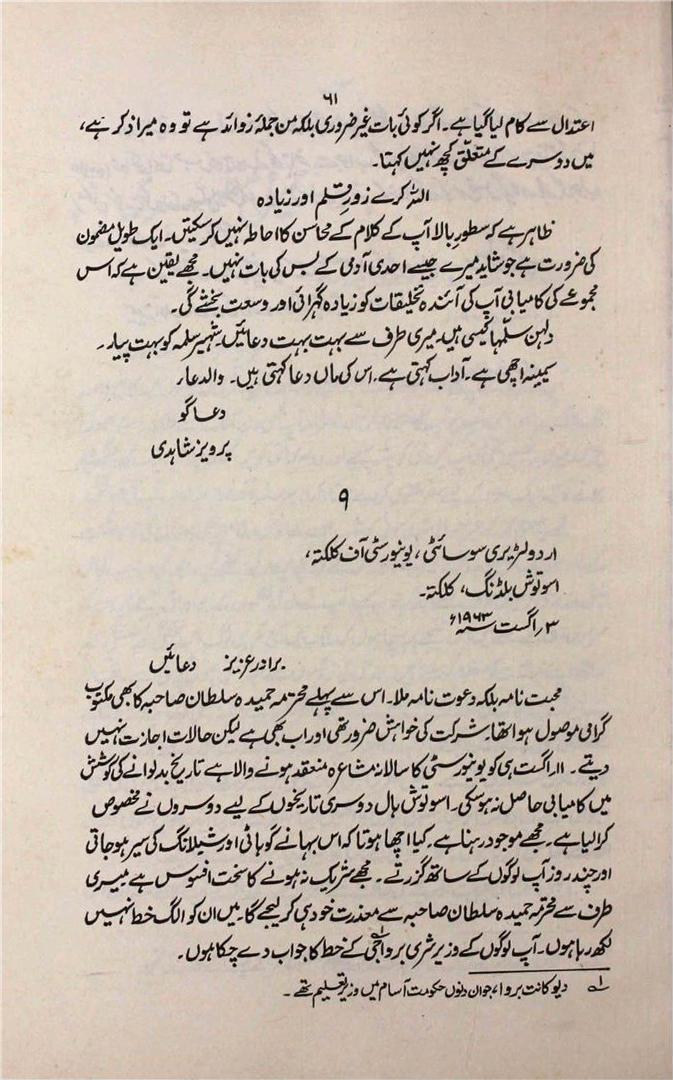 ۶۱
اعتدال سے کام لیا گیا ہے۔ اگر کوئی بات غیر ضروری بلکہ من جملۂ زوائد ہے تو وہ میرا ذکر ہے،
میں دوسرے کے متعلق کچھ نہیں کہتا۔
اللہ کرے زورِ قلم اور زیادہ
ظاہر ہے کہ سطورِ بالا آپ کے کلام کے محاسن کا احاطہ نہیں کر سکتیں۔ ایک طویل مضمون
کی ضرورت ہے جو شاید میرے جیسے احدی آدمی کے بس کی بات نہیں۔ مجھے یقین ہے کہ اس
مجموعے کی کامیابی آپ کی آئندہ تخلیقات کو زیادہ گہرائی اور وسعت بخشے گی۔
دلہن سلّمہا کیسی ہیں۔ میری طرف سے بہت بہت دعائیں۔ شہپر سلمہ کو بہت پیار۔
کمینہ اچھی ہے۔ آداب کہتی ہے۔ اس کی ماں دعا کہتی ہیں۔ والدعا۔
دعا گو
پرویز شاہدی
۹
اردو لٹریری سوسائٹی، یونیورسٹی آف کلکتہ،
اسوتوش بلڈنگ، کلکتہ۔
۳؍ اگست سنہ ۱۹۶۳ء
برادر عزیز دعائیں
محبت نامہ بلکہ دعوت نامہ ملا۔ اس سے پہلے محترمہ حمیدہ سلطان صاحبہ کا بھی مکتوب
گرامی موصول ہوا تھا۔ شرکت کی خواہش ضرور تھی اور اب بھی ہے لیکن حالات اجازت نہیں
دیتے۔ ۱۱؍ اگست ہی کو یونیورسٹی کا سالانہ مشاعرہ منعقد ہونے والا ہے تاریخ بدلوانے کی کوشش
میں کامیابی حاصل نہ ہو سکی۔ اسوتوش ہال دوسری تاریخوں کے لیے دوسروں نے مخصوص
کرا لیا ہے۔ مجھے موجود رہنا ہے۔ کیا اچھا ہوتا کہ اس بہانے گوہاٹی اور شیلانگ کی سیر ہو جاتی
اور چند روز آپ لوگوں کے ساتھ گزرتے۔ مجھے شریک نہ ہونے کا سخت افسوس ہے میری
طرف سے محترمہ حمیدہ سلطان صاحبہ سے معذرت خود ہی کر لیجے گا۔ میں ان کو الگ خط نہیں
لکھ رہا ہوں۔ آپ لوگوں کے وزیر شری بروا جی۱؎ کے خط کا جواب دے چکا ہوں۔
۱؎ دیو کانت بروا، جو ان دنوں حکومت آسام میں وزیر تعلیم تھے۔